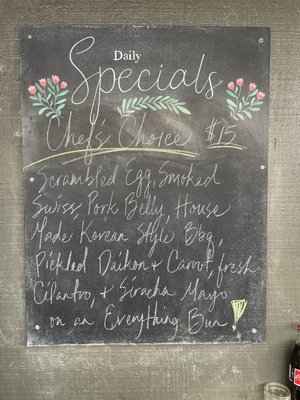 Daily
Specials
Chef's Choice $15
Scrambled Egg, Smoked
Swiss, Pork Belly, House
Made Korean Style Bbq,
Pickled Daikon & Carrot, fresh
Cilantro, & Siracha Mayo
on an Everything Bun!